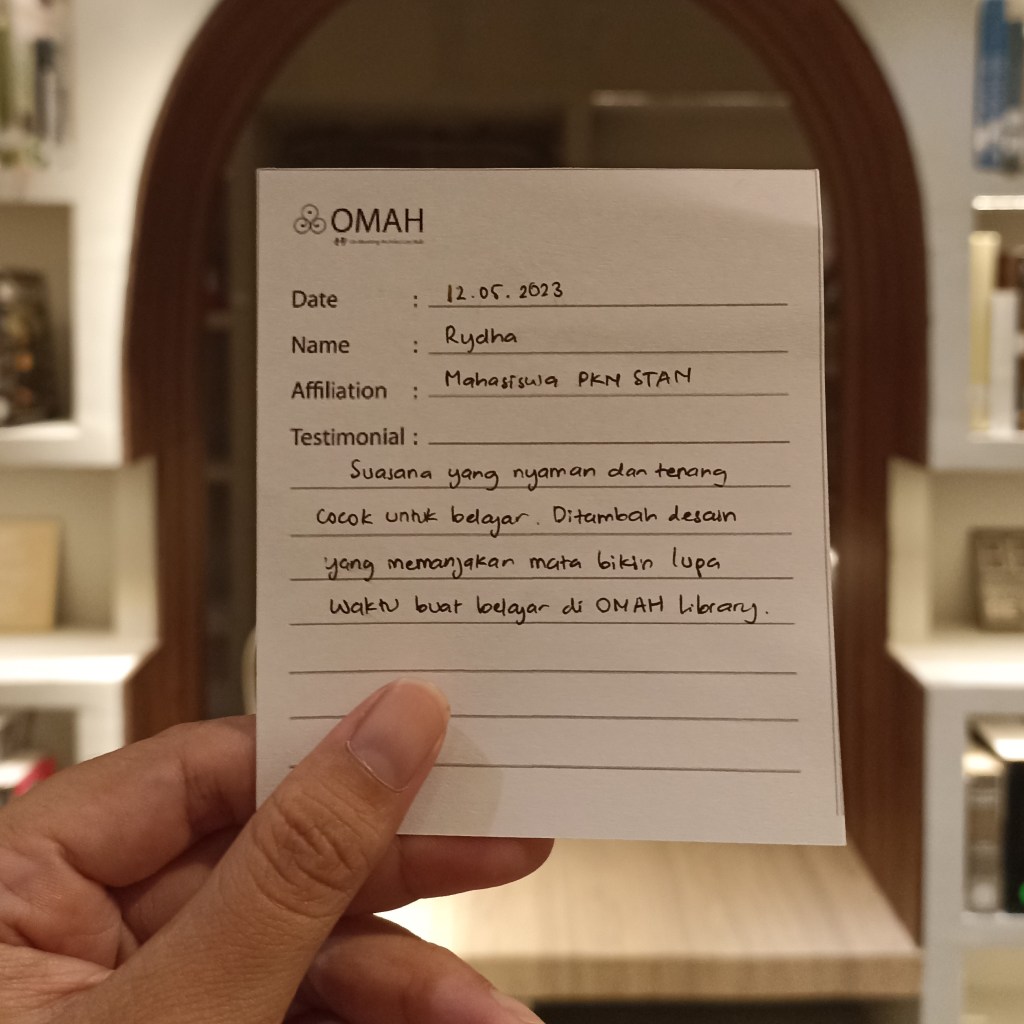 OMAH
Date : 12.05.2023
Name : Rydha
Affiliation : Mahasiswa PKN STAN
Testimonial :
Suasana yang nyaman dan tenang
cocok untuk belajar. Ditambah desain
yang memanjakan mata bikin lupa
waktu buat belajar di OMAH Library.